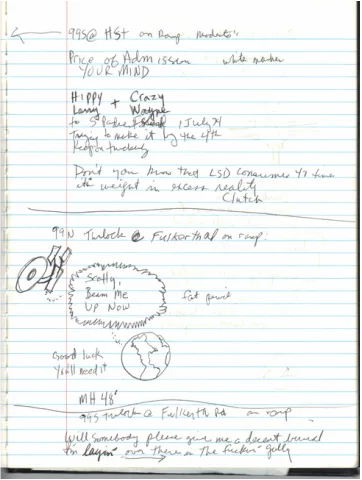 99S @ H St on Ramp Modesto
Price of Admission white marker
YOUR MIND
HIPPY + Crazy
Larry Wayne
to S Padre Island 1 July
Trying to make it by the 4th
Keep on trucking
Don't you know that LSD consumes 47 times
its weight in excess reality
Clutch
99 N Turlock @ Fulkerth Rd on ramp:
Scotty,
Beam Me
UP NOW
Good luck
You'll need it
MH 48'
99S Turlock @ Fulkerth Rd on ramp
Will somebody please give me a decent burial
I'm layin' over there in the fuckin' gully